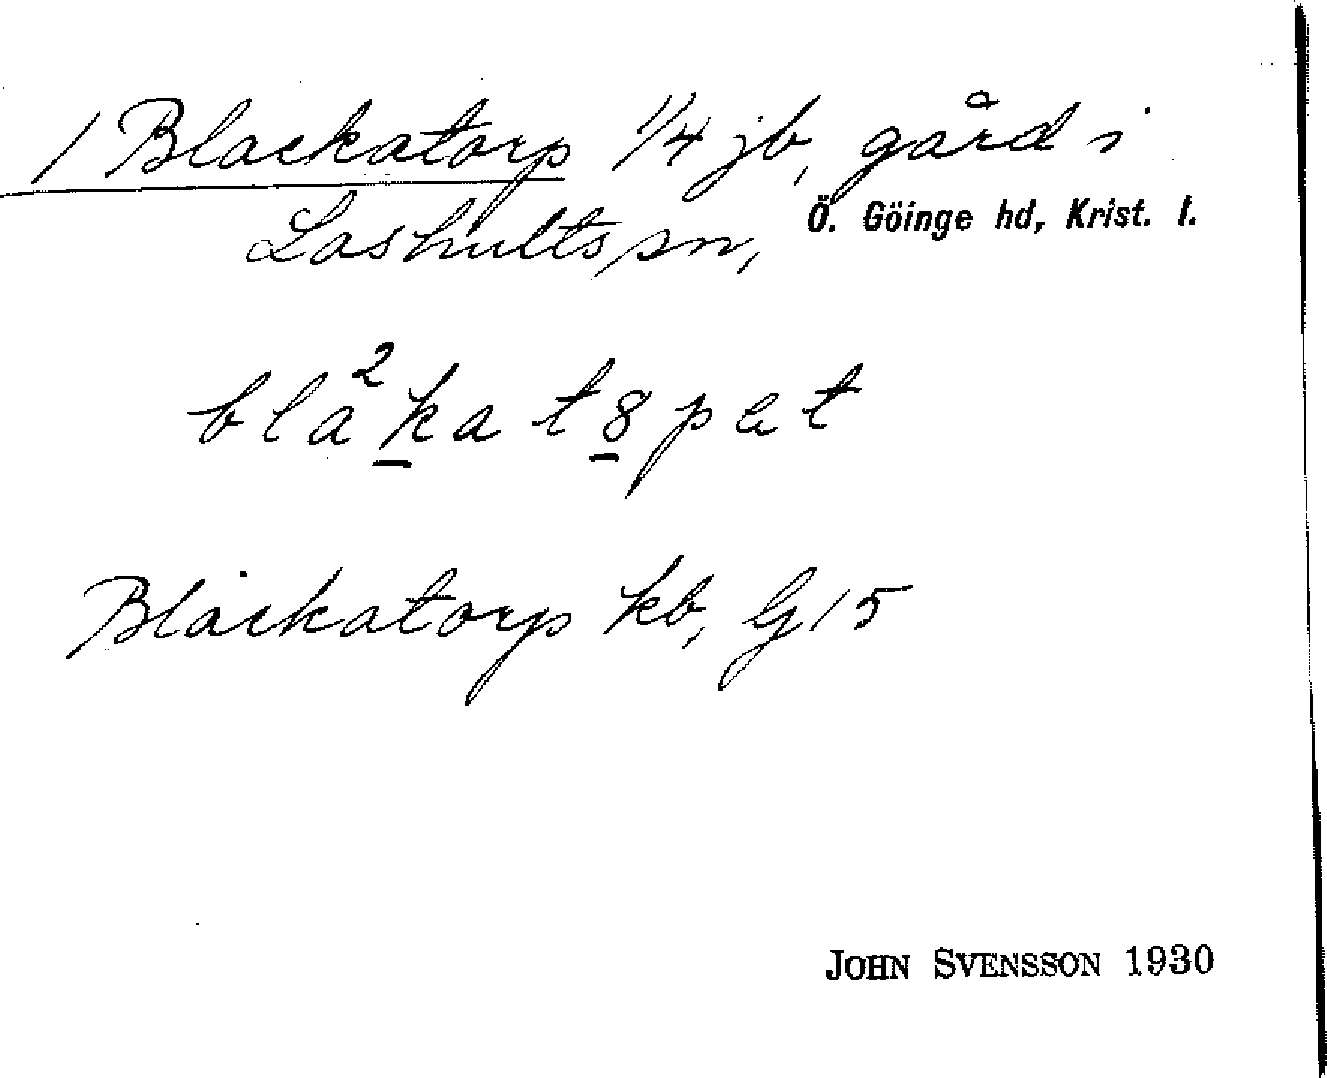 1 Blackatorp 1/4 jb, gård i
Loshults sn, Ö. Göinge hd, Krist. l.
bla²kat8pet
Blackatorp kb, G15
JOHN SVENSSON 1930